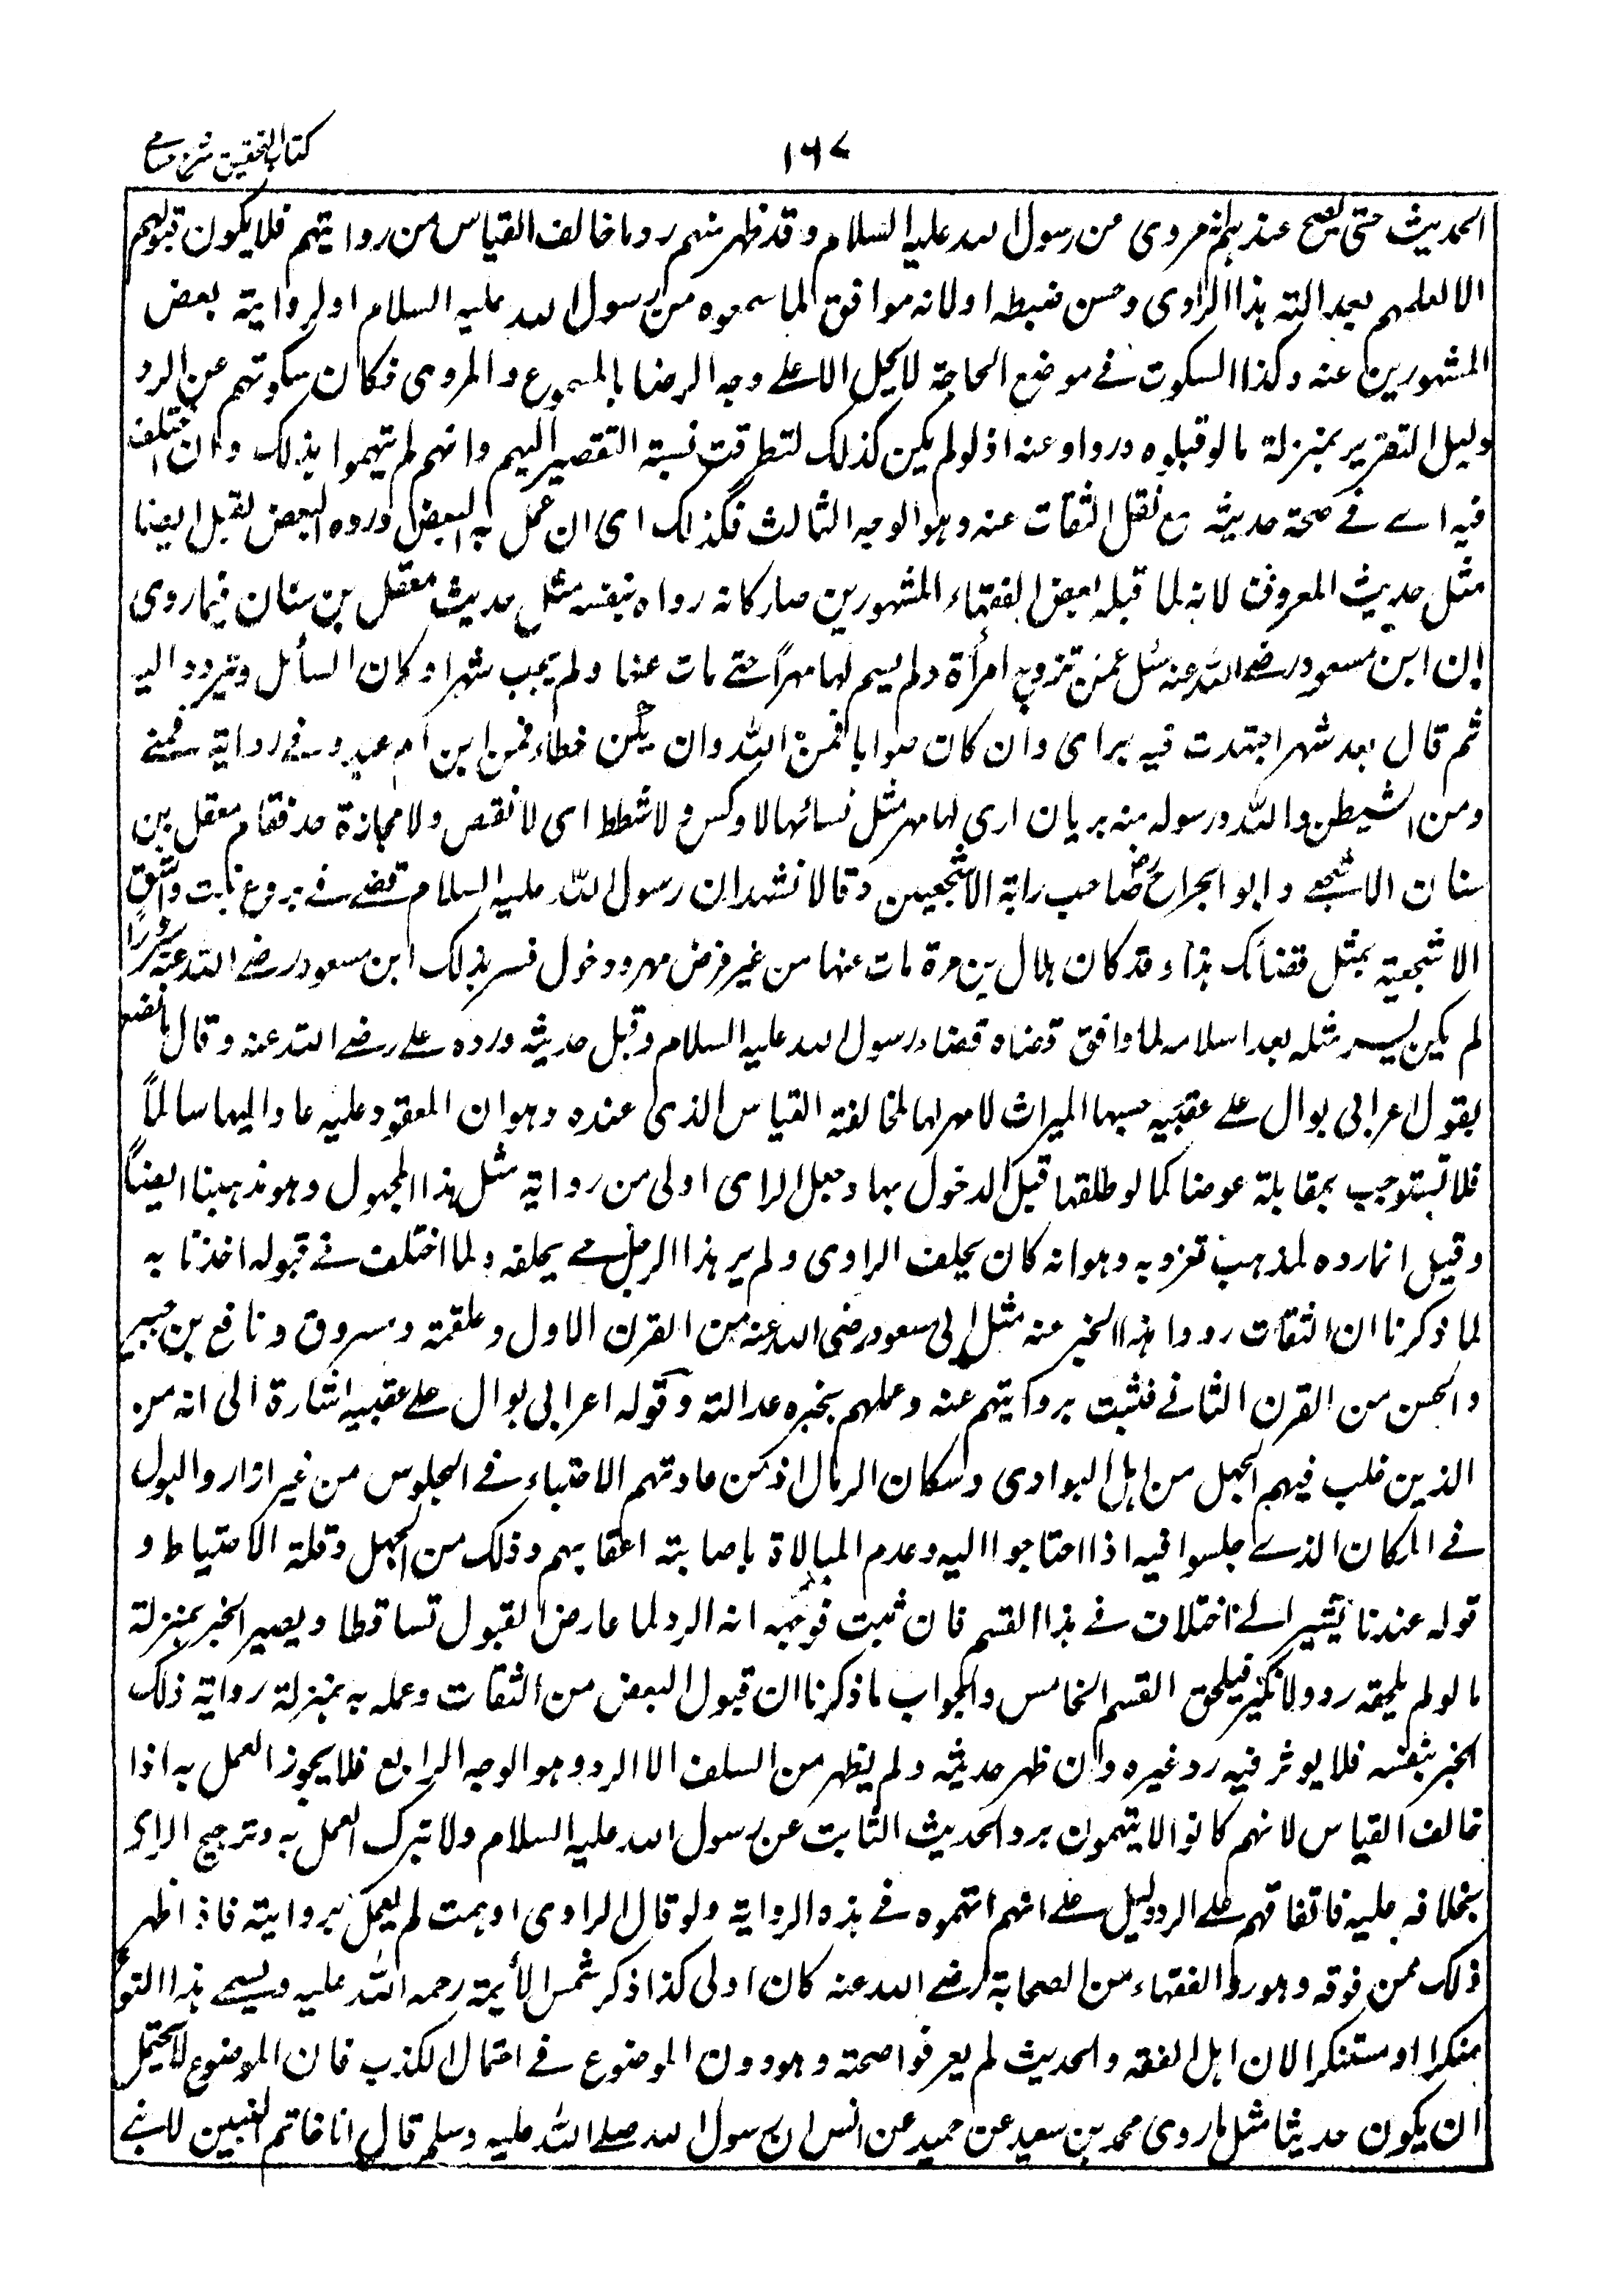 كتاب التحقيق شرح حسامى
١٦٧
الحديث حتى يصح عندهم انه مروى عن رسول الله عليه السلام وقد ظهر منهم رد ما خالف القياس من روايتهم فلا يكون قبولهم
الا لعلمهم بعدالة هذا الراوى وحسن ضبطه او لانه موافق لما سمعوه من رسول الله عليه السلام او لرواية بعض
المشهورين عنه وكذا السكوت فے موضع الحاجة لا يحل الا علے وجه الرضا بالمسموع والمروى فكان سكوتهم عن الرد
دليل التقرير بمنزلة ما لو قبلوه ورووا عنه اذ لو لم يكن كذلك لتطرقت نسبة التقصير اليهم وانهم لم يتهموا بذلك وان اختلف
فيه اے فے صحة حديثه مع نقل الثقات عنه وهو الوجه الثالث فكذلك اى ان عمل به البعض ورده البعض يقبل ايضا
مثل حديث المعروف لانه لما قبله بعض الفقهاء المشهورين صار كانه رواه بنفسه مثل حديث معقل بن سنان فيما روى
ان ابن مسعود رضے الله عنه سئل عمن تزوج امرأة ولم يسم لها مهرا حتے مات عنها ولم يجب شهرا وكان السائل يتردد اليه
ثم قال بعد شهر اجتهدت فيه براى وان كان صوابا فمن الله وان يكن خطاء فمن ابن ام عبد وفے رواية فمنے
ومن الشيطن والله ورسوله منه بريان ارى لها مهر مثل نسائها لا وكس ولا شطط اى لا نقص ولا مجازة حد فقام معقل بن
سنان الاشجعے وابو الجراح صاحب راية الاشجعين وقالا نشهد ان رسول الله عليه السلام قضے فے بروع بنت واشق
الاشجعية بمثل قضائك هذا وقد كان هلال بن مرة مات عنها من غير فرض مهر ودخول فسر بذلك ابن مسعود رضے الله عنه سرورًا
لم يكن يسر مثله بعد اسلامه لما وافق قضاه قضاء رسول الله عليه السلام وقبل حديثه ورده علے رضے الله عنه وقال ما نصنع
بقول اعرابى بوال علے عقبيه حسبها الميراث لا مهر لها لمخالفته القياس الذى عنده وهو ان المعقود عليه عاد اليها سالمًا
فلا تستوجب بمقابلة عوضا كما لو طلقها قبل الدخول بها وجعل الراى اولى من رواية مثل هذا المجهول وهو مذهبنا ايضًا
وقيل انما رده لمذهب تفرد به وهو انه كان يحلف الراوى ولم ير هذا الرجل حے يحلفه ولما اختلف فے قبوله اخذنا به
لما ذكرنا ان الثقات رووا هذا الخبر عنه مثل ابى سعود رضى الله عنه من القرن الاول وعلقمة ومسروق ونافع بن جبير
والحسن من القرن الثانے فثبت بروايتهم عنه وعملهم بخبره عدالته وقوله اعرابى بوال علے عقبيه اشارة الى انه من
الذين غلب فيهم الجهل من اهل البوادى وسكان الرمال اذ من عادتهم الاحتباء فے الجلوس من غير ازار والبول
فے المكان الذے جلسوا فيه اذا احتاجوا اليه وعدم المبالاة باصابته اعقابهم وذلك من الجهل وقلة الاحتياط و
قوله عندنا يشير الے اختلاف فے هذا القسم فان ثبت فوجهه انه الرد لما عارض القبول تساقطا ويصير الخبر بمنزلة
ما لو لم يلحقه رد ولا نكير فيلحق القسم الخامس والجواب ما ذكرنا ان قبول البعض من الثقات وعمله به بمنزلة رواية ذلك
الخبر بنفسه فلا يوثر فيه رد غيره وان ظهر حديثه ولم يظهر من السلف الا الرد وهو الوجه الرابع فلا يجوز العمل به اذا
خالف القياس لانهم كانوا لا يتهمون برد الحديث الثابت عن رسول الله عليه السلام ولا بترك العمل به وترجيح الراى
بخلافه عليه فاتفاقهم علے الرد دليل علے انهم اتهموه فے هذه الرواية ولو قال الراوى اوهمت لم يعمل بروايته فاذا ظهر
ذلك ممن فوقه وهو رد الفقهاء من الصحابة رضے الله عنه كان اولى كذا ذكر شمس الأيمة رحمه الله عليه ويسمے هذا النوع
منكرا او مستنكرا لان اهل الفقه والحديث لم يعرفوا صحته وهو دون الموضوع فے احتمال الكذب فان الموضوع لا يحتمل
ان يكون حديثا مثل ما روى محمد بن سعيد عن حميد عن انس ان رسول الله صلے الله عليه وسلم قال انا خاتم النبيين لا نبے